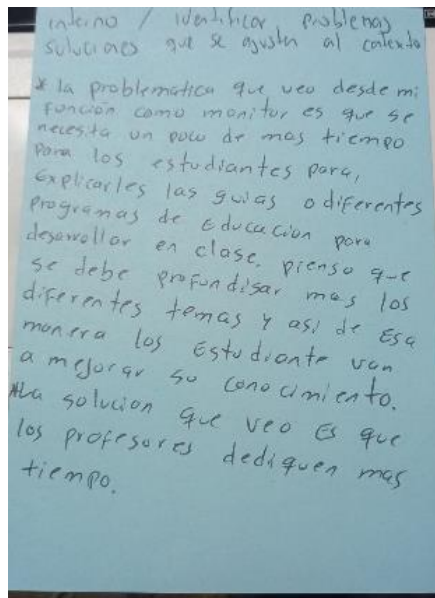 interno / identificar problemas
soluciones que se ajusten al contexto
* la problematica que veo desde mi
función como monitor es que se
necesita un poco de mas tiempo
para los estudiantes para,
explicarles las guias o diferentes
programas de Educacion para
desarrollar en clase. pienso que
se debe profundisar mas los
diferentes temas y asi de Esa
manera los Estudiante van
a mejorar su conocimiento.
*La solucion que veo Es que
los profesores dediquen mas
tiempo.